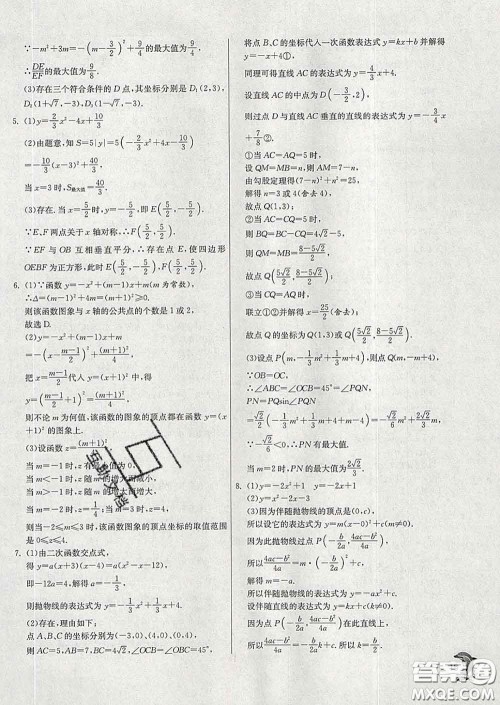 ∵-m²+3m=-(m-3/2)²+9/8的最大值为9/8.
∴DE/EF的最大值为9/8.
(3)存在三个符合条件的D点,其坐标分别是D₁(2,3),
D₂(1+√7,-3),D₃(1-√7,-3).
5. (1)y=2/3x²-4x+10/3
(2)由题意,知S=5|y|=5(-2/3x²+4x-10/3)
=-10/3(x-3)²+40/3.
当x=3时,S最大值=40/3.
(3)存在. 当x=5/2时,y=-5/2,即E(5/2,-5/2).
∵E、F两点关于x轴对称,∴F(5/2,5/2).
∵EF与OB互相垂直平分,∴存在点E,使四边形
OEBF为正方形,此时E(5/2,-5/2),F(5/2,5/2).
6. (1)∵函数y=-x²+(m-1)x+m(m为常数),
∴Δ=(m-1)²+4m=(m+1)²≥0,
则该函数图象与x轴的公共点的个数是1或2,
故选D.
(2)y=-x²+(m-1)x+m
=-(x-(m-1)/2)²+(m+1)²/4,
把x=(m-1)/2代入y=(x+1)²,得
y=((m-1)/2+1)²=(m+1)²/4,
则不论m为何值,该函数的图象的顶点都在函数y=(x
+1)²的图象上.
(3)设函数z=(m+1)²/4,
当m=-1时,z有最小值为0.
当m<-1时,z随m的增大而减小;
当m>-1时,z随m的增大而增大,
当m=-2时,z=1/4;当m=3时,z=4,
则当-2≤m≤3时,该函数图象的顶点坐标的取值范
围是0≤z≤4.
7. (1)由二次函数交点式,
得y=a(x+3)(x-4)=a(x²-x-12),
即-12a=4,解得a=-1/3,
则抛物线的表达式为y=-1/3x²+1/3x+4.
(2)存在,理由如下:
点A、B、C的坐标分别为(-3,0)、(4,0)、(0,4),
则AC=5,AB=7,BC=4√2,∠OCB=∠OBC=45°.
将点B、C的坐标代入一次函数表达式y=kx+b并解得
y=-x+4①,
同理可得直线AC的表达式为y=4/3x+4.
设直线AC的中点为D(-3/2,2),
则过点D与直线AC垂直的直线的表达式为y=-3/4x+
7/8②.
①当AC=AQ=5时,
设QM=MB=n,则AM=7-n,
由勾股定理得(7-n)²+n²=25.
解得n=3或4(舍去4),
故点Q(1,3);
②当AC=CQ=5时,
即BQ=BC-CQ=4√2-5,
则QM=MB=(8-5√2)/2,
故点Q(5√2/2,(8-5√2)/2);
③当CQ=AQ时,
联立①②并解得x=25/2(舍去);
故点Q的坐标为Q(1,3)或(5√2/2,(8-5√2)/2).
(3)设点P(m,-1/3m²+1/3m+4),则点Q(m,-m+4),
∵OB=OC,
∴∠ABC=∠OCB=45°=∠PQN,
PN=PQsin∠PQN
=√2/2(-1/3m²+1/3m+4+m-4)=-√2/6m²+2√2/3m.
∵-√2/6<0,∴PN有最大值.
当m=2时,PN的最大值为2√2/3.
8. (1)y=-2x²+1 y=-2x+1
(2)因为伴随抛物线的顶点是(0,c),
所以设它的表达式为y=m(x-0)²+c(m≠0),
因为此抛物线过点P(-b/2a,(4ac-b²)/4a),
所以(4ac-b²)/4a=m·(-b/2a)²+c,
解得m=-a.
所以伴随抛物线的表达式为y=-ax²+c.
设伴随直线的表达式为y=kx+c(k≠0).
因为点P(-b/2a,(4ac-b²)/4a)在此直线上,
所以(4ac-b²)/4a=k·(-b/2a)+c.
互助文档
答案圈
MXQE.COM